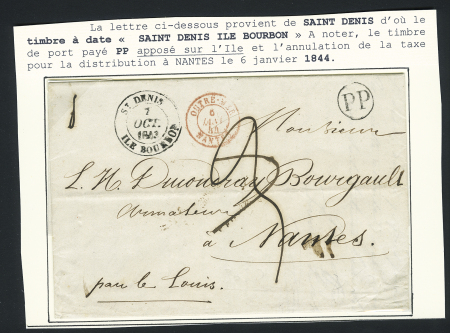 La lettre ci-dessous provient de SAINT DENIS d'où le
timbre à date « SAINT DENIS ILE BOURBON » A noter, le timbre
de port payé PP apposé sur l'Ile et l'annulation de la taxe
pour la distribution à NANTES le 6 janvier 1844.
ST DENIS
1
OCT.
1843
ILE BOURBON
OUTRE-MER
6
NANTES
PP
Monsieur
L. H. Ducoudray Bourgault
armateur
à Nantes.
par le Louis.